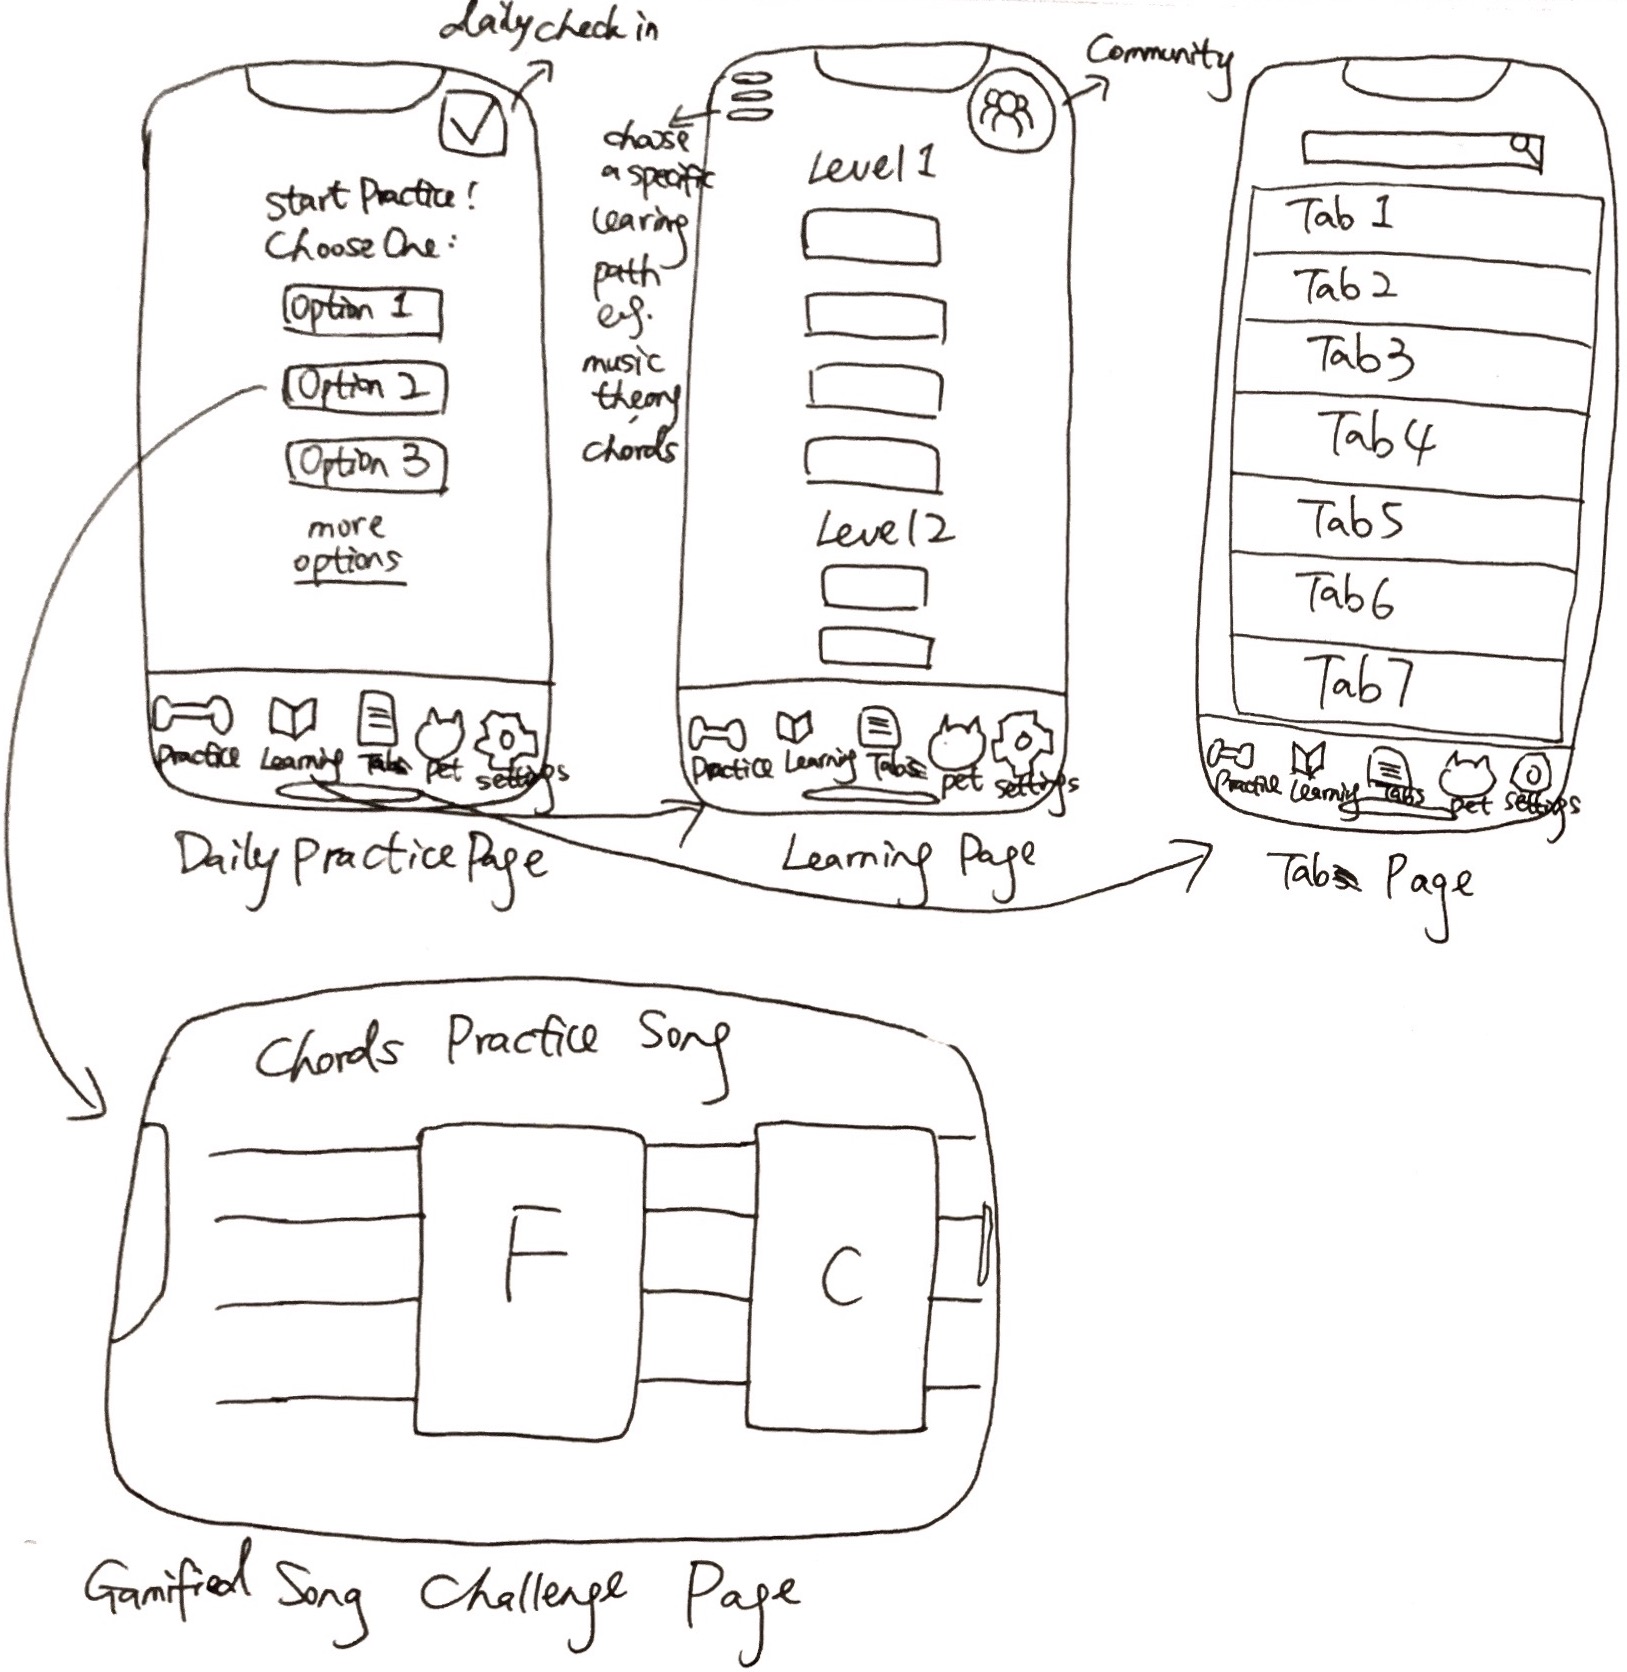 daily check in
start Practice!
Choose One:
Option 1
Option 2
Option 3
more
options
Practice Learning Tabs pet settings
Daily Practice Page
choose
a specific
learing
path
e.g.
music
theory,
chords
Community
Level 1
Level 2
Practice Learning Tabs pet settings
Learning Page
Tab 1
Tab 2
Tab 3
Tab 4
Tab 5
Tab 6
Tab 7
Practice Learning Tabs pet settings
Tabs Page
Chords Practice Song
F
C
Gamified Song Challenge Page